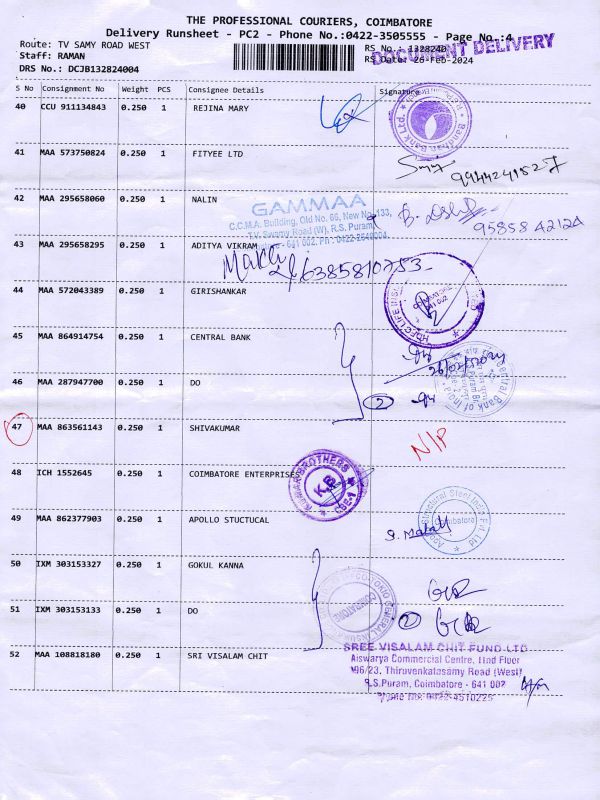 THE PROFESSIONAL COURIERS, COIMBATORE
Delivery Runsheet - PC2 - Phone No.:0422-3505555 - Page No.:4
Route: TV SAMY ROAD WEST
RS No.: 1328240
DOCUMENT DELIVERY
Staff: RAMAN
RS Date: 26-Feb-2024
DRS No.: DCJB132824004
S No Consignment No Weight PCS Consignee Details Signature
40 CCU 911134843 0.250 1 REJINA MARY
Bandhan Bank Ltd.
41 MAA 573750824 0.250 1 FITYEE LTD
9944241827
42 MAA 295658060 0.250 1 NALIN
GAMMAA
C.C.M.A. Building, Old No. 66, New No. 133,
T.V. Swamy Road (W), R.S. Puram,
- 641 002. Ph : 0422-
95858 42124
43 MAA 295658295 0.250 1 ADITYA VIKRAM
6385810753
44 MAA 572043389 0.250 1 GIRISHANKAR
HDFC LIFE
45 MAA 864914754 0.250 1 CENTRAL BANK
Central Bank of India
46 MAA 287947700 0.250 1 DO
2
47 MAA 863561143 0.250 1 SHIVAKUMAR
N/P
48 ICH 1552645 0.250 1 COIMBATORE ENTERPRISES
KUMAR BROTHERS
K.B
CBE-1
49 MAA 862377903 0.250 1 APOLLO STUCTUCAL
Structural Steel India Pvt. Ltd
Coimbatore
50 IXM 303153327 0.250 1 GOKUL KANNA
51 IXM 303153133 0.250 1 DO
GENERAL INSURANCE
COIMBATORE
2
52 MAA 108818180 0.250 1 SRI VISALAM CHIT
SREE VISALAM CHIT FUND LTD
Aiswarya Commercial Centre, IInd Floor
196/23, Thiruvenkatasamy Road (West)
R.S.Puram, Coimbatore - 641 002
Phone No: 0422-4510225